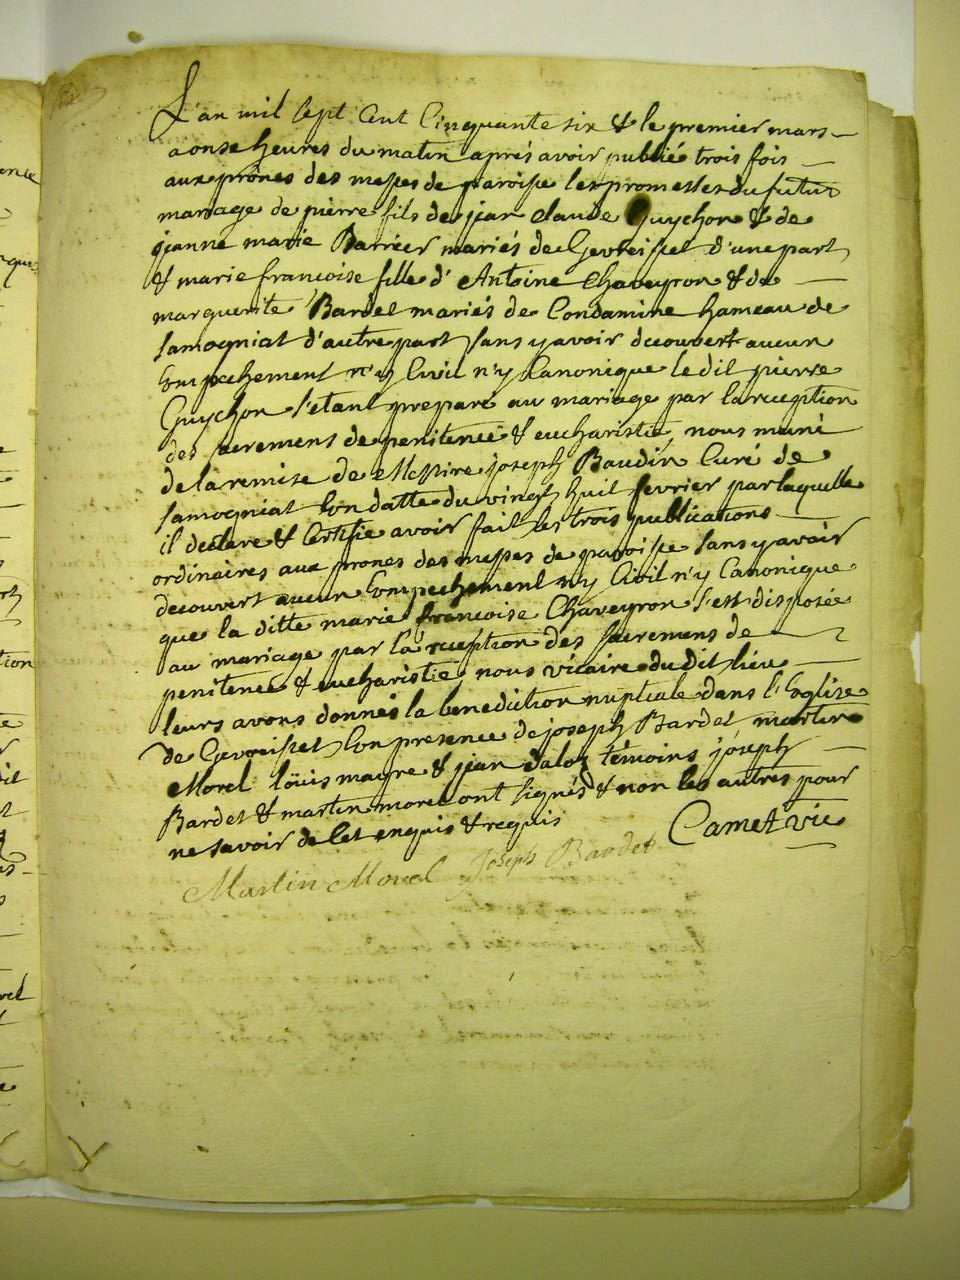 L'an mil sept Cent Cinquante six & le premier mars
a onse heures du matin aprés avoir publié trois fois
aux prônes des messes de paroisse les promesses du futur
mariage de pierre fils de jean claude Guychon & de
jeanne marie Barrier mariés de Gevreisset d'une part
& marie francoise fille d'Antoine Chaveyron & de
marguerite Bardet mariés de Condamine hameau de
samogniat d'autre part sans y avoir decouvert aucun
Empechement n'y Civil n'y Canonique le dit pierre
Guychon s'etant preparé au mariage par la reception
des sacremens de penitence & eucharistie, nous muni
de la remise de Messire joseph Baudin Curé de
samogniat En datte du vingt huit fevrier par laquelle
il declare & Certifie avoir fait les trois publications
ordinaires aux prones des messes de paroisse sans y avoir
decouvert aucun Empechement n'y Civil n'y Canonique
que la ditte marie francoise Chaveyron s'est disposée
au mariage par la reception des sacremens de
penitence & eucharistie, nous vicaire du dit lieu
leurs avons donnés la benediction nuptiale dans l'Eglise
de Gevreisset En presence de joseph Bardet martin
Morel loüis mayre & jean daloz témoins joseph
Bardet & martin morel ont signés & non les autres pour
ne savoir de Cet enquis & requis
Camet vic
Martin Morel Joseph Bardet